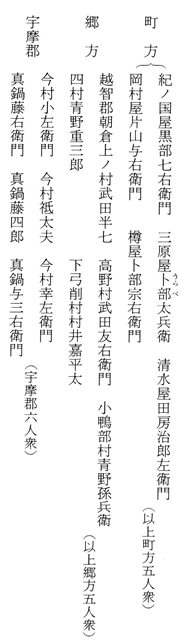 町方
紀ノ国屋黒部七右衛門 三原屋卜部太兵衛 清水屋田房治郎左衛門
うらべ
岡村屋片山与右衛門 樽屋卜部宗右衛門
(以上町方五人衆)
郷方
越智郡朝倉上ノ村武田半七 高野村武田友右衛門 小鴨部村青野孫兵衛
四村青野重三郎 下弓削村村井嘉平太
(以上郷方五人衆)
宇摩郡
今村小左衛門 今村祗太夫 今村幸左衛門
真鍋藤右衛門 真鍋藤四郎 真鍋与三右衛門
(宇摩郡六人衆)